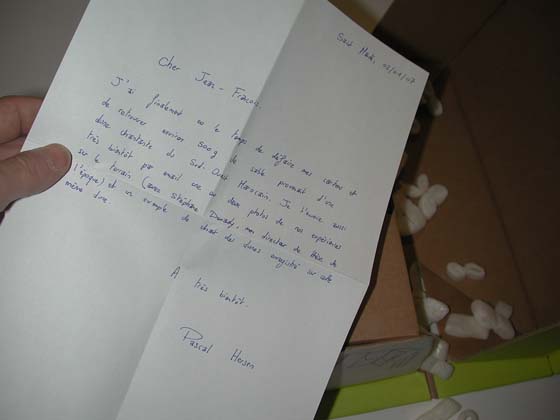 Sant Medi, 02/01/07
Cher Jean-François,
J'ai finalement eu le temps de défaire mes cartons et
de retrouver environ 500g de sable provenant d'une
dune chantante du Sud-Ouest Marocain. Je t'envoie aussi
très bientôt par email une ou deux photos de nos expériences
sur le terrain (avec Stéphane Douady, mon directeur de thèse de
l'époque) et un exemple de chant des dunes enregistré sur cette
même dune.
A très bientôt.
Pascal Hersen